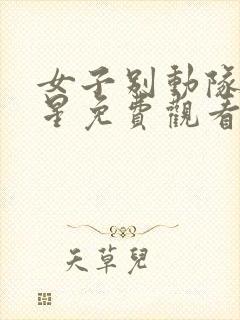 女子别動隊
星免費觀看
天草兒